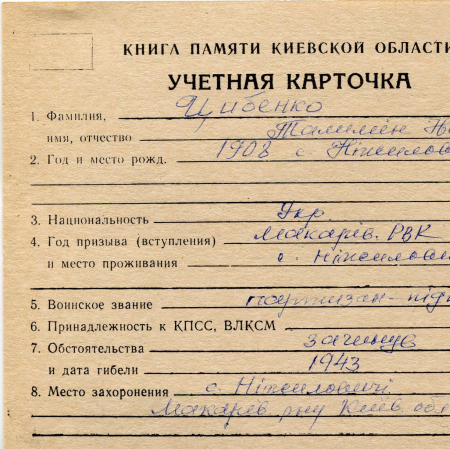 КНИГА ПАМЯТИ КИЕВСКОЙ ОБЛАСТИ
УЧЕТНАЯ КАРТОЧКА
1. Фамилия, Цибенко
имя, отчество
2. Год и место рожд. 1908 с.
3. Национальность Укр.
4. Год призыва (вступления) Макарів. РВК
и место проживания с.
5. Воинское звание партизан-
6. Принадлежность к КПСС, ВЛКСМ
7. Обстоятельства загинув
и дата гибели 1943
8. Место захоронения с. Ніжиловичі
Макарів. р-ну Київ. обл